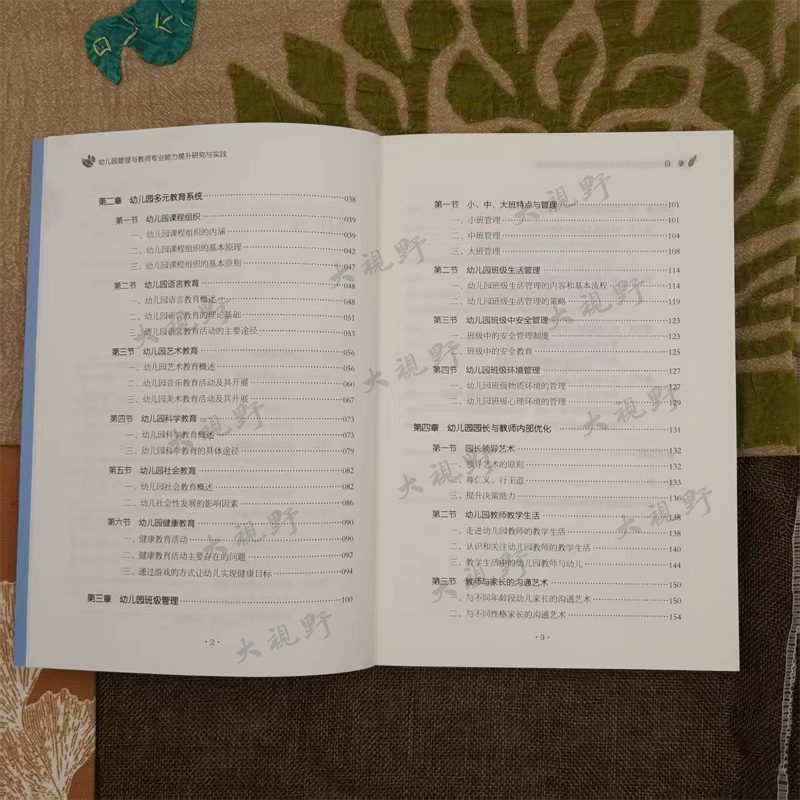 幼儿园管理与教师专业能力提升研究与实践
第二章 幼儿园多元教育系统 038
第一节 幼儿园课程组织 039
一、幼儿园课程组织的内涵 039
二、幼儿园课程组织的基本原理 042
三、幼儿园课程组织的基本原则 047
第二节 幼儿园语言教育 048
一、幼儿园语言教育概述 048
二、幼儿园语言教育的理论基础 051
三、幼儿园语言教育活动的主要途径 053
第三节 幼儿园艺术教育 056
一、幼儿园艺术教育概述 056
二、幼儿园音乐教育活动及其开展 060
三、幼儿园美术教育活动及其开展 067
第四节 幼儿园科学教育 073
一、幼儿园科学教育概述 073
二、幼儿园科学教育的具体途径 079
第五节 幼儿园社会教育 082
一、幼儿园社会教育概述 082
二、幼儿社会性发展的影响因素 086
第六节 幼儿园健康教育 090
一、健康教育活动 090
二、健康教育活动主要存在的问题 092
三、通过游戏的方式让幼儿实现健康目标 094
第三章 幼儿园班级管理 100
· 2 ·
目 录
第一节 小、中、大班特点与管理 101
一、小班管理 101
二、中班管理 104
三、大班管理 108
第二节 幼儿园班级生活管理 114
一、幼儿园班级生活管理的内容和基本流程 114
二、幼儿园班级生活管理的策略 119
第三节 幼儿园班级中安全管理 123
一、班级中的安全管理制度 123
二、班级中的安全教育 125
第四节 幼儿园班级环境管理 127
一、幼儿园班级物质环境的管理 127
二、幼儿园班级心理环境的管理 129
第四章 幼儿园园长与教师内部优化 131
第一节 园长领导艺术 132
一、领导艺术的原则 132
二、尊仁义、行王道 134
三、提升决策能力 136
第二节 幼儿园教师教学生活 138
一、走进幼儿园教师的教学生活 138
二、认识和关注幼儿园教师的教学生活 140
三、教学生活中的幼儿园教师与幼儿 144
第三节 教师与家长的沟通艺术 150
一、与不同年龄段幼儿家长的沟通艺术 150
二、与不同性格家长的沟通艺术 154
· 3 ·
大視野
大視野
大視野
大視野
大視野
大視野
大視野
大視野
大視野
大視野
大視野
大視野